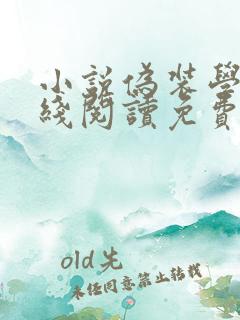 小說偽裝學
綫閱讀免費
old先
未經同意禁止轉載